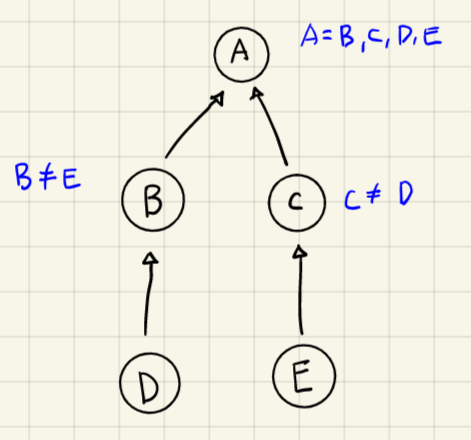 A
A=B,C,D,E
B≠E
B
C
C≠D
D
E